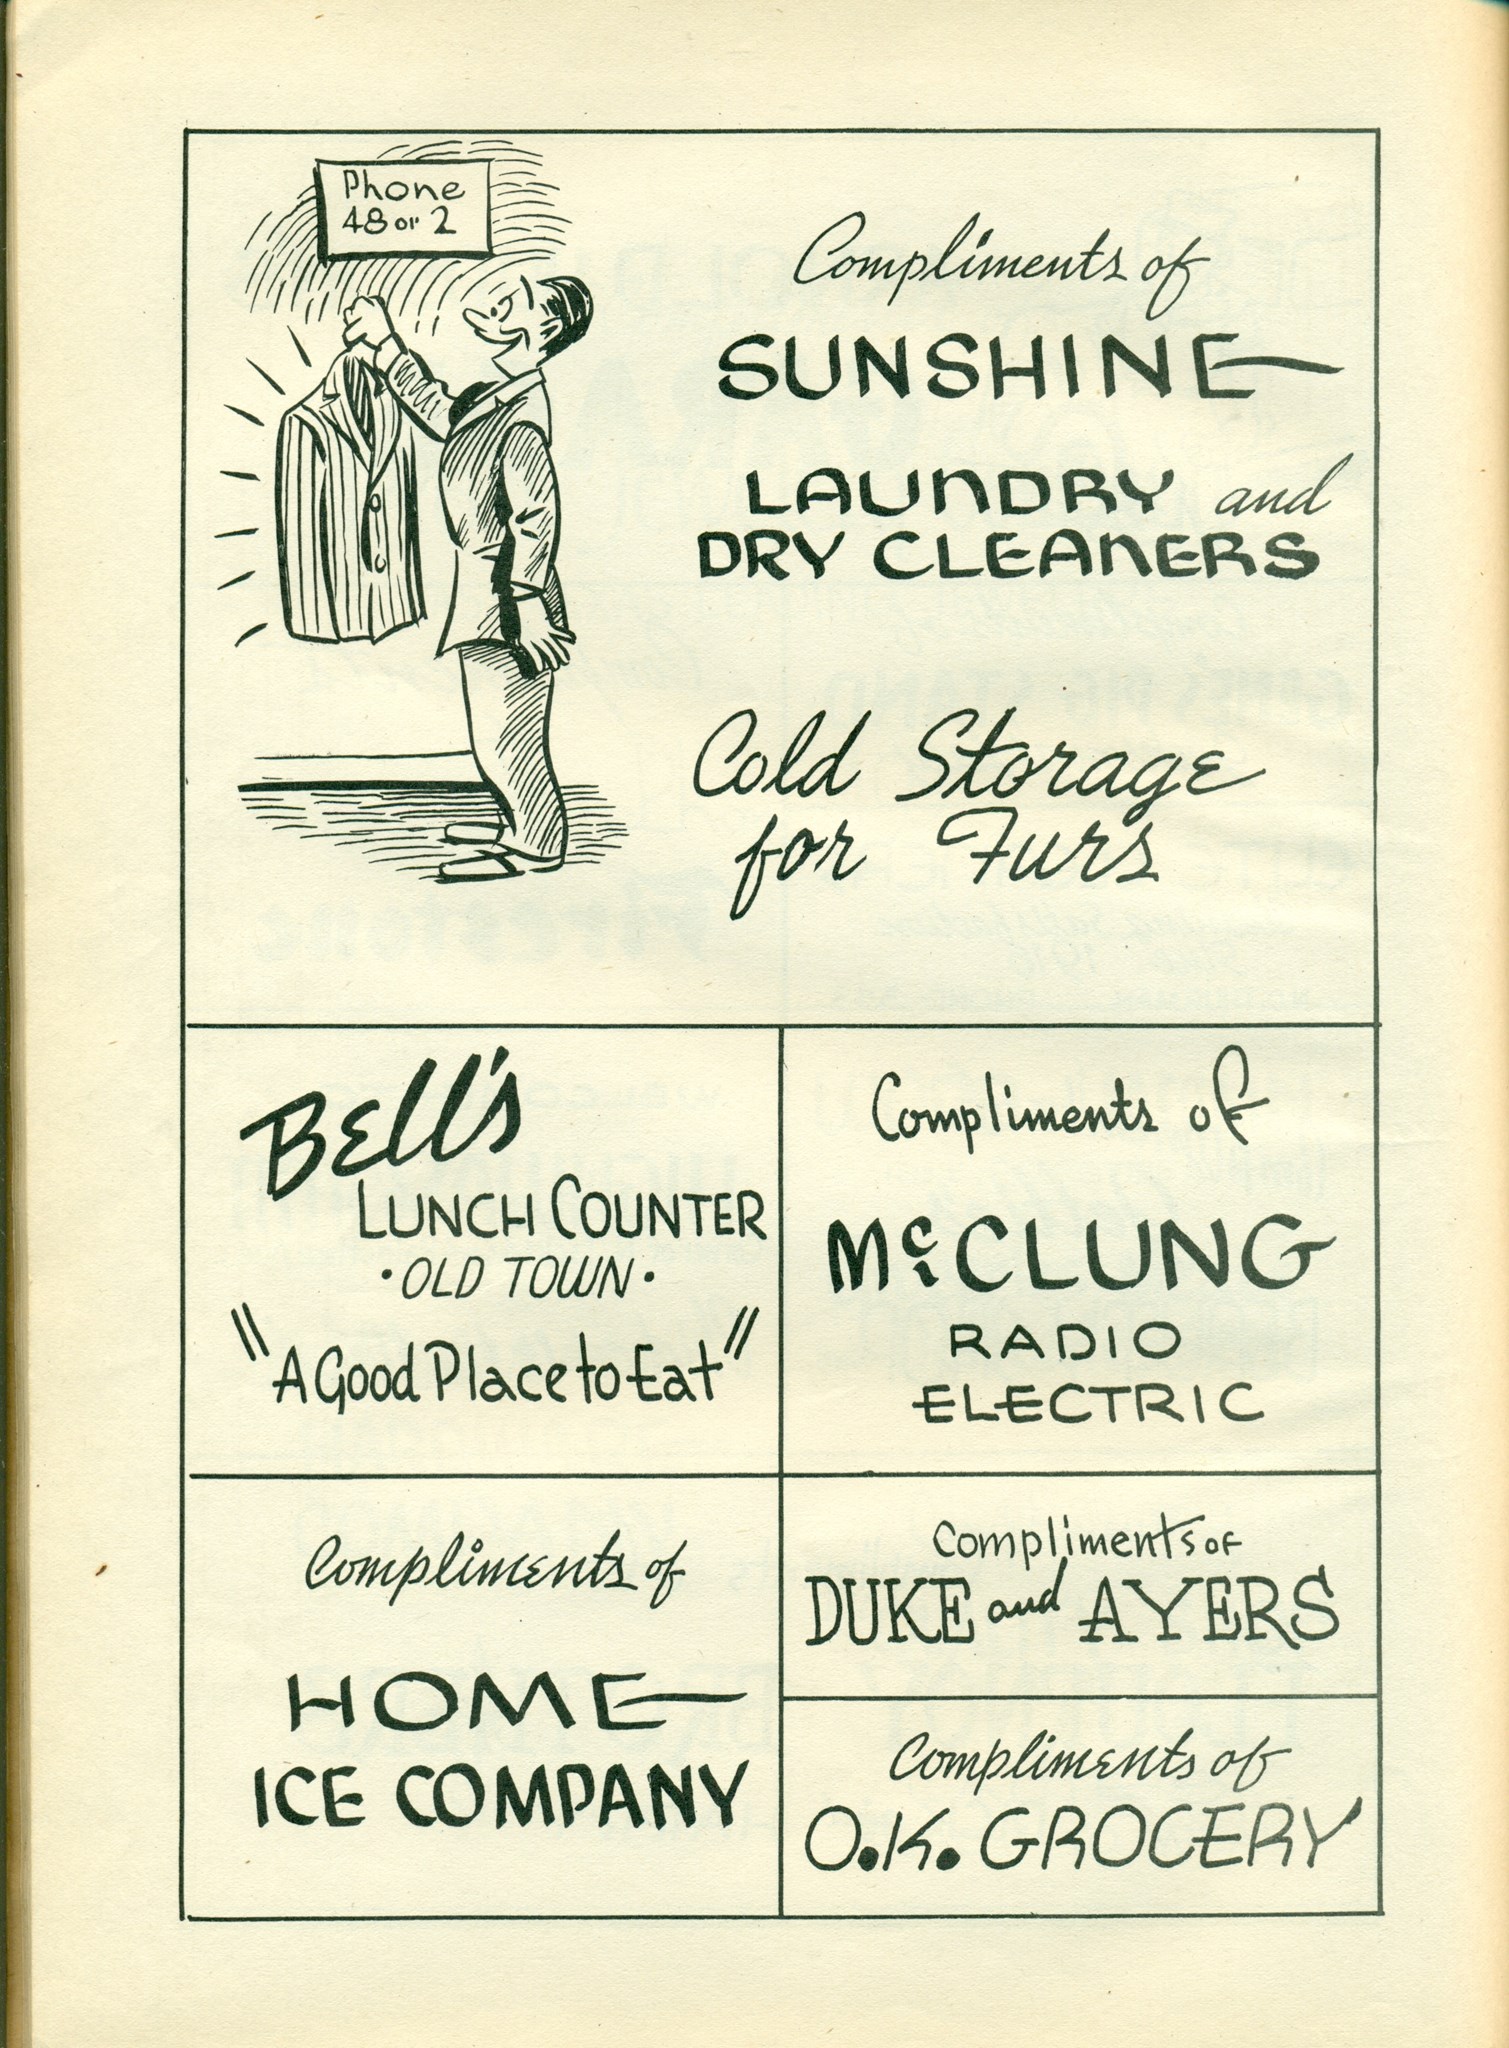 Phone
48 or 2
Compliments of
SUNSHINE
LAUNDRY and
DRY CLEANERS
Cold Storage
for Furs
Bell's
LUNCH COUNTER
• OLD TOWN •
"A Good Place to Eat"
Compliments of
McCLUNG
RADIO
ELECTRIC
Compliments of
HOME
ICE COMPANY
Compliments of
DUKE and AYERS
Compliments of
O.K. GROCERY